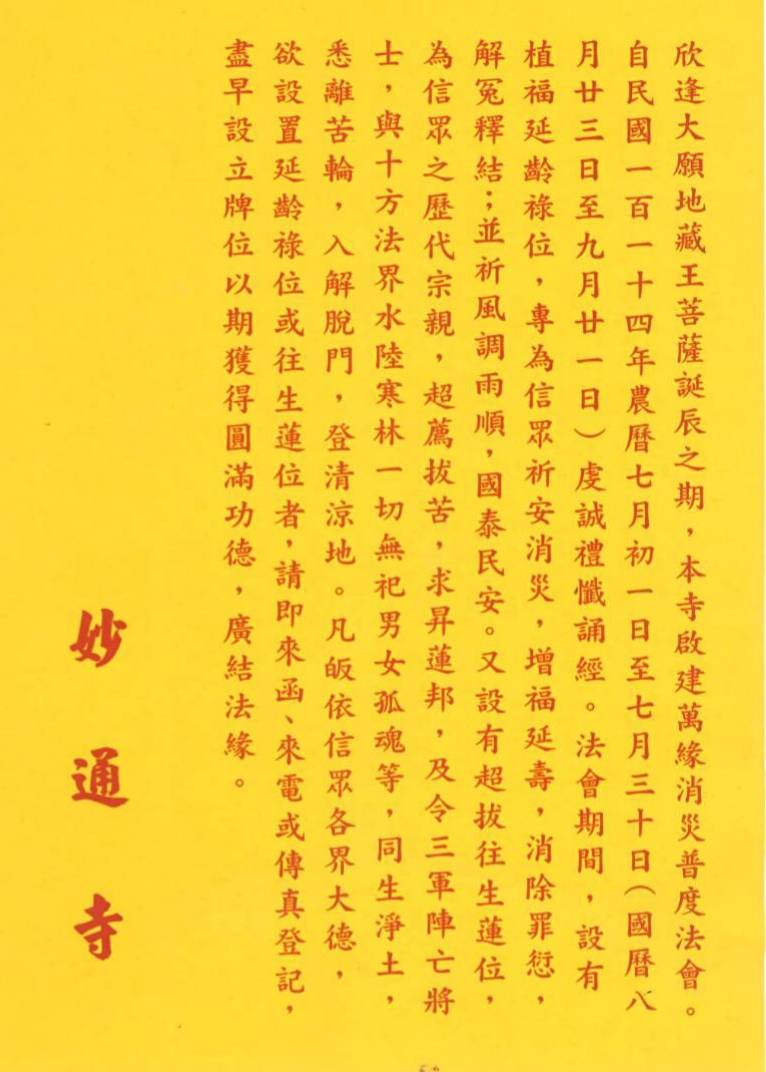 欣逢大願地藏王菩薩誕辰之期，本寺啟建萬緣消災普度法會。
自民國一百一十四年農曆七月初一日至七月三十日（國曆八
月廿三日至九月廿一日）虔誠禮懺誦經。法會期間，設有
植福延齡祿位，專為信眾祈安消災，增福延壽，消除罪愆，
解冤釋結；並祈風調雨順，國泰民安。又設有超拔往生蓮位，
為信眾之歷代宗親，超薦拔苦，求昇蓮邦，及令三軍陣亡將
士，與十方法界水陸寒林一切無祀男女孤魂等，同生淨土，
悉離苦輪，入解脫門，登清涼地。凡皈依信眾各界大德，
欲設置延齡祿位或往生蓮位者，請即來函、來電或傳真登記，
盡早設立牌位以期獲得圓滿功德，廣結法緣。
妙通寺